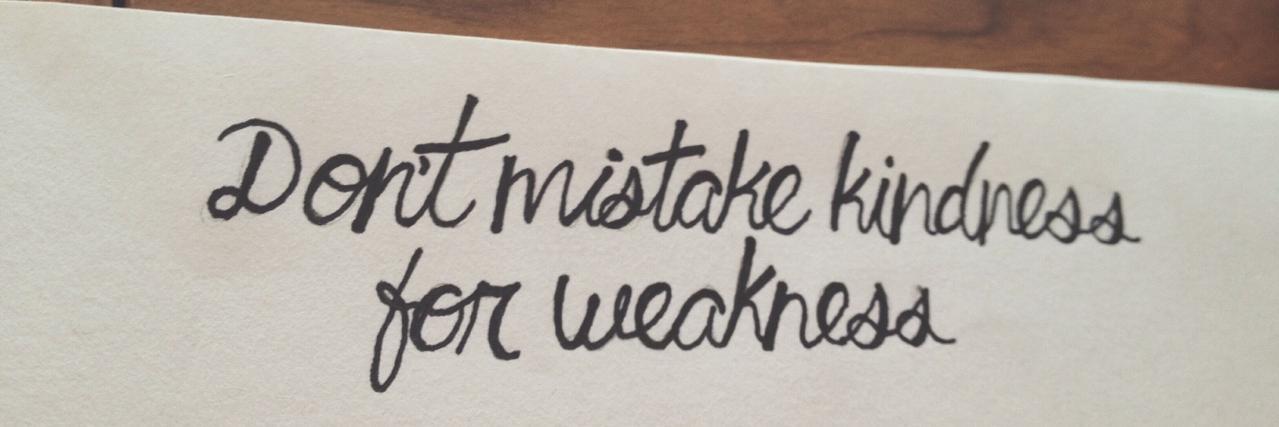 Don't mistake kindness
for weakness